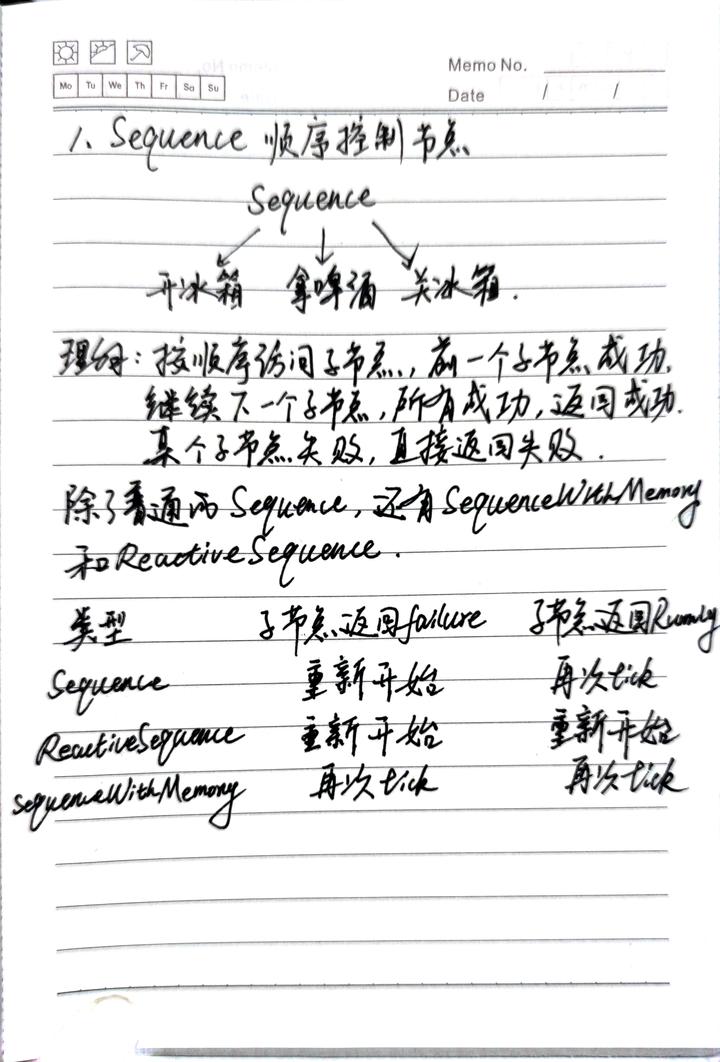 Memo No.
Mo Tu We Th Fr Sa Su
Date / /
1、Sequence 顺序控制节点
Sequence
开冰箱 拿啤酒 关冰箱.
理解：按顺序访问子节点,前一个子节点成功,
继续下一个子节点,所有成功,返回成功.
某个子节点失败,直接返回失败.
除了普通的Sequence,还有SequenceWithMemory
和ReactiveSequence.
类型 子节点返回failure 子节点返回Running
Sequence 重新开始 再次tick
ReactiveSequence 重新开始 重新开始
SequenceWithMemory 再次tick 再次tick